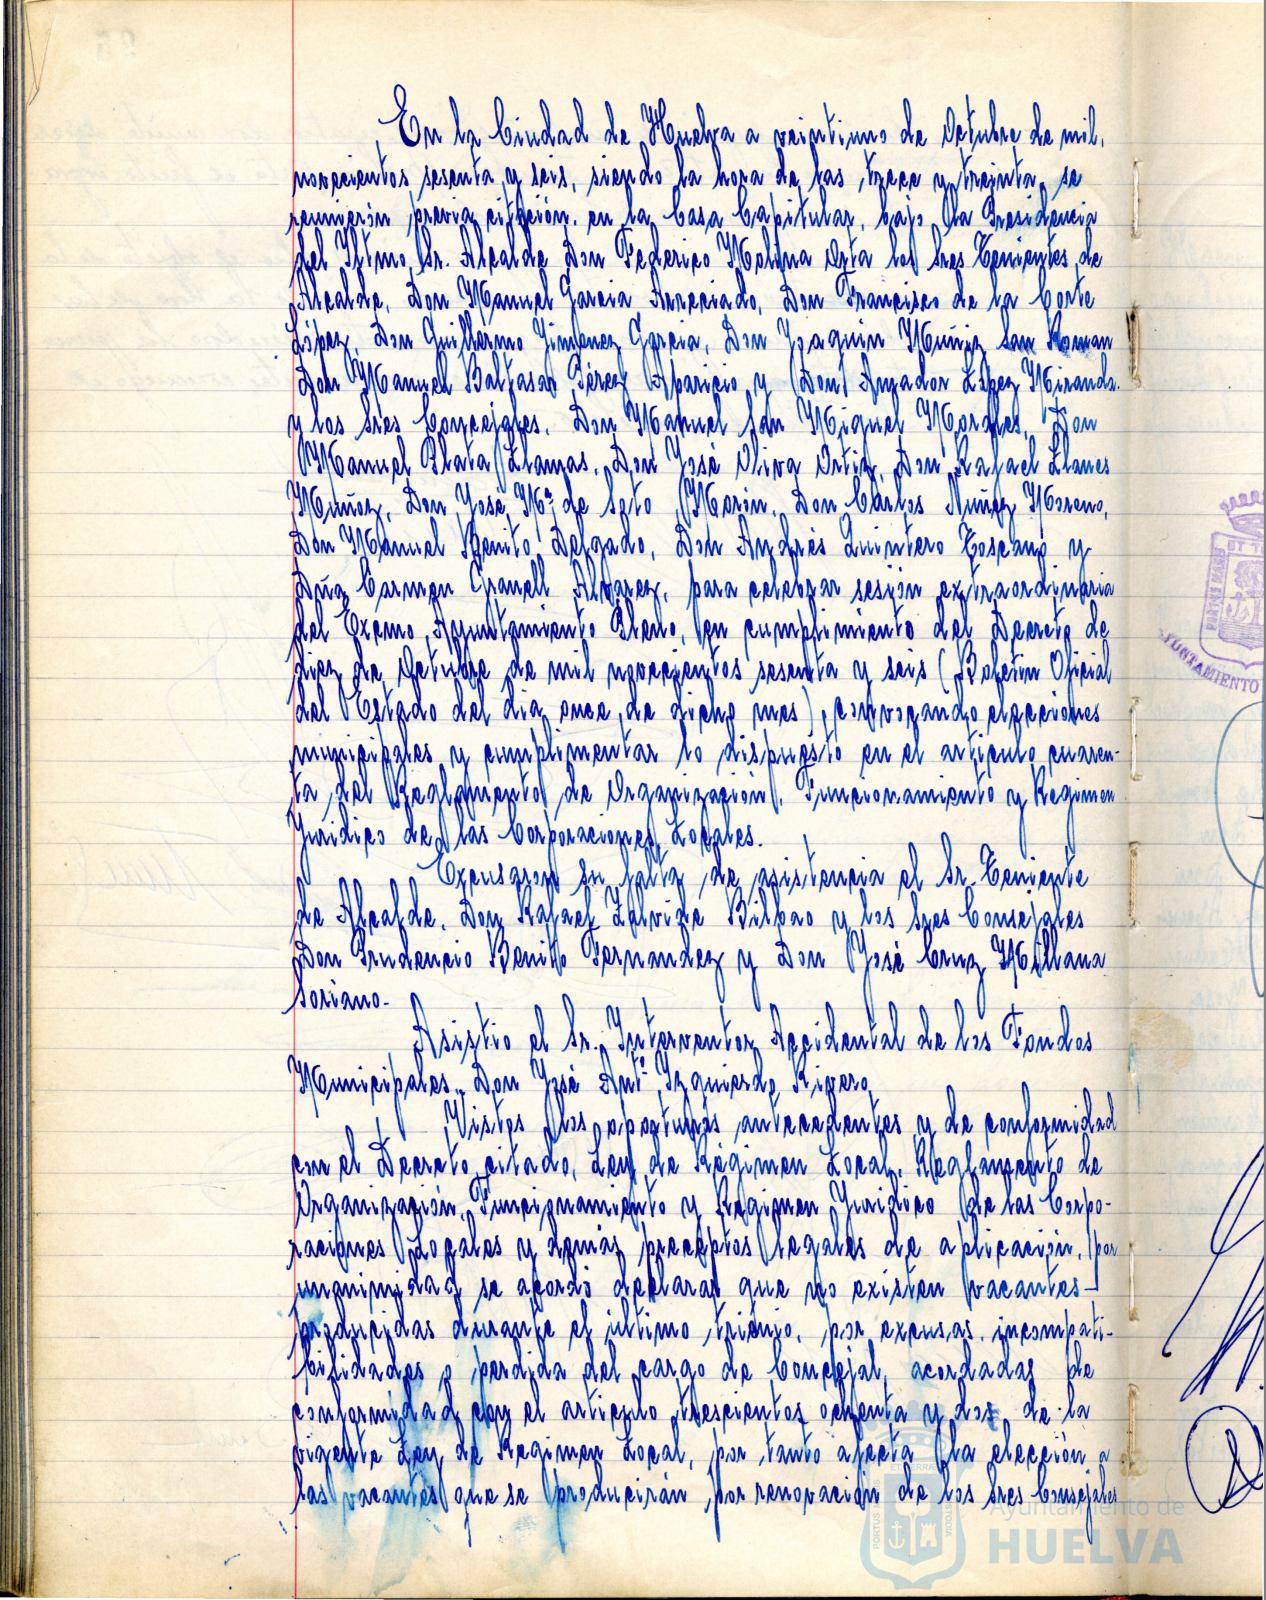 En la Ciudad de Huelva a veintiuno de Octubre de mil,
novecientos sesenta y seis, siendo la hora de las trece y treinta, se
reunierón previa citación, en la Casa Capitular, bajo la Presidencia
del Iltmo. Sr. Alcalde Don Federico Molina Orta los Sres Tenientes de
Alcalde, Don Manuel Garcia Arreciado, Don Francisco de la Corte
López, Don Guillermo Jimenez Garcia, Don Joaquin Muñiz San Roman
Don Manuel Baltasar Pérez Aparicio y Don Amador López Miranda.
y los Sres Concejales, Don Manuel San Miguel Morales, Don
Manuel Plata Llamas, Don José Oliva Ortiz, Don Rafael Llanes
Muñoz, Don José Mª de Soto Morón, Don Cárlos Nuñez Moreno,
Don Manuel Benito Delgado, Don Andrés Quintero Toscano y
Dña Carmen Granell Alvarez, para celebrar sesión extraordinaria
del Excmo. Ayuntamiento Pleno, en cumplimiento del Decreto de
diez de Octubre de mil novecientos sesenta y seis (Boletin Oficial
del Estado del dia once de dicho mes), convocando elecciones
municipales y cumplimentar lo dispuesto en el articulo cuaren-
ta del Reglamento de Organización, Funcionamiento y Regimen
Juridico de las Corporaciones Locales.
Excusaron su falta de asistencia el Sr. Teniente
de Alcalde, Don Rafael Zalvide Bilbao y los Sres Consejales
Don Prudencio Benito Fernandez y Don José Cruz Millana
Soriano.-
Asistio el Sr. Interventor Accidental de los Fondos
Municipales, Don José Antº Izquierdo Rivero.
Vistos los oportunos antecedentes y de conformidad
con el Decreto citado, Ley de Régimen Local, Reglamento de
Organización, Funcionamiento y Regimen Juridico de las Corpo-
raciones Locales y demás preceptos legales de aplicación, por
unanimidad se acordó declarar que no existen vacantes-
producidas durante el último trienio, por excusas, incompati-
bilidades o perdida del cargo de Concejal, acordadas de
conformidad con el articulo trescientos ochenta y dos de la
vigente Ley de Regimen Local, por tanto afecta la elección a
las vacantes que se producirán por renovación de los Sres Consejales
Ayuntamiento de
HUELVA
AYUNTAMIENTO